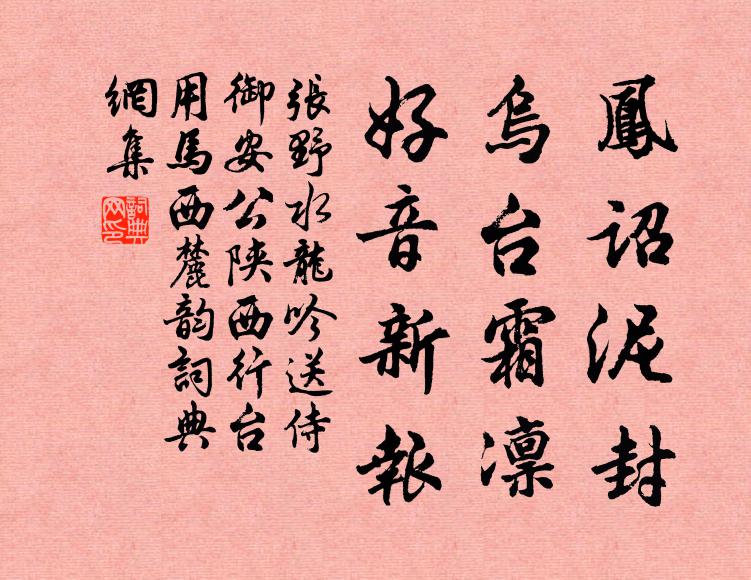 鳳詔泥封
烏台霜凜
好音新報
張野水龍吟送侍
御安公陝西行台
用馬西麓韵詞典
網集
詞典
网印